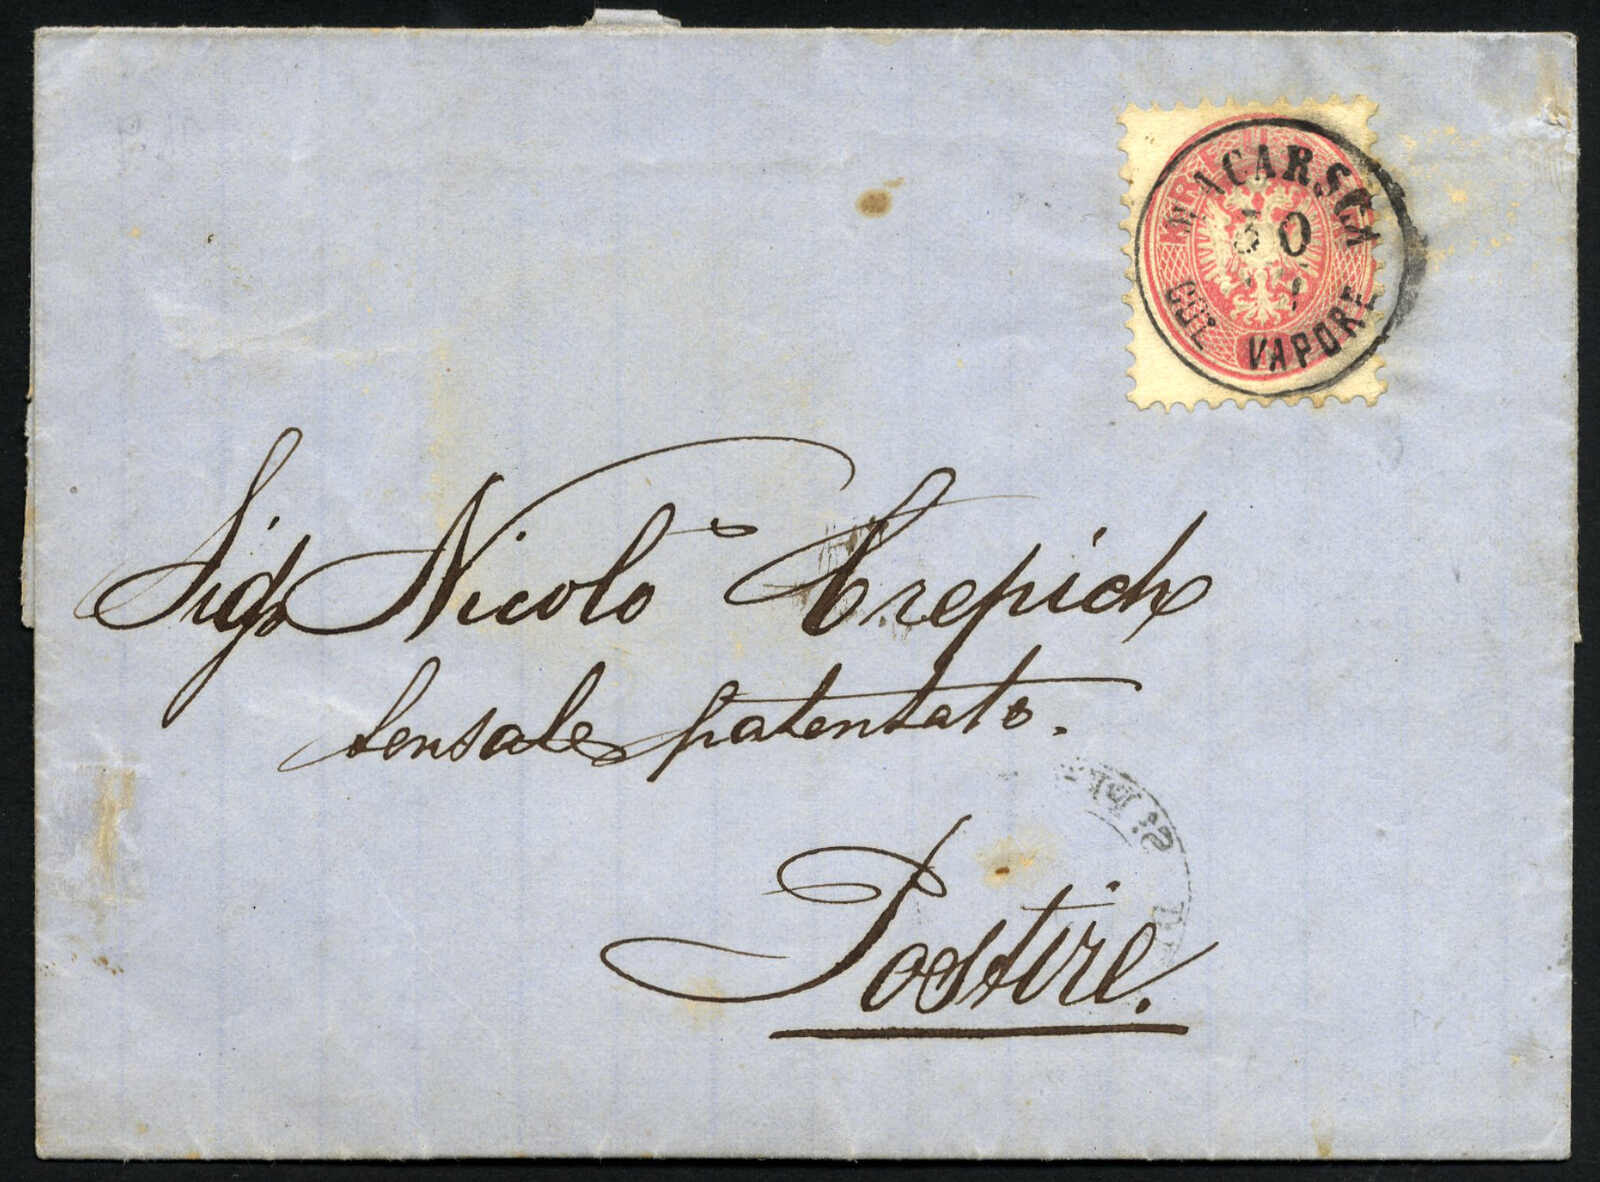 MACARSCA
30
COL VAPORE
Sigr Nicolò Crepich
sensale patentato.
Postire.